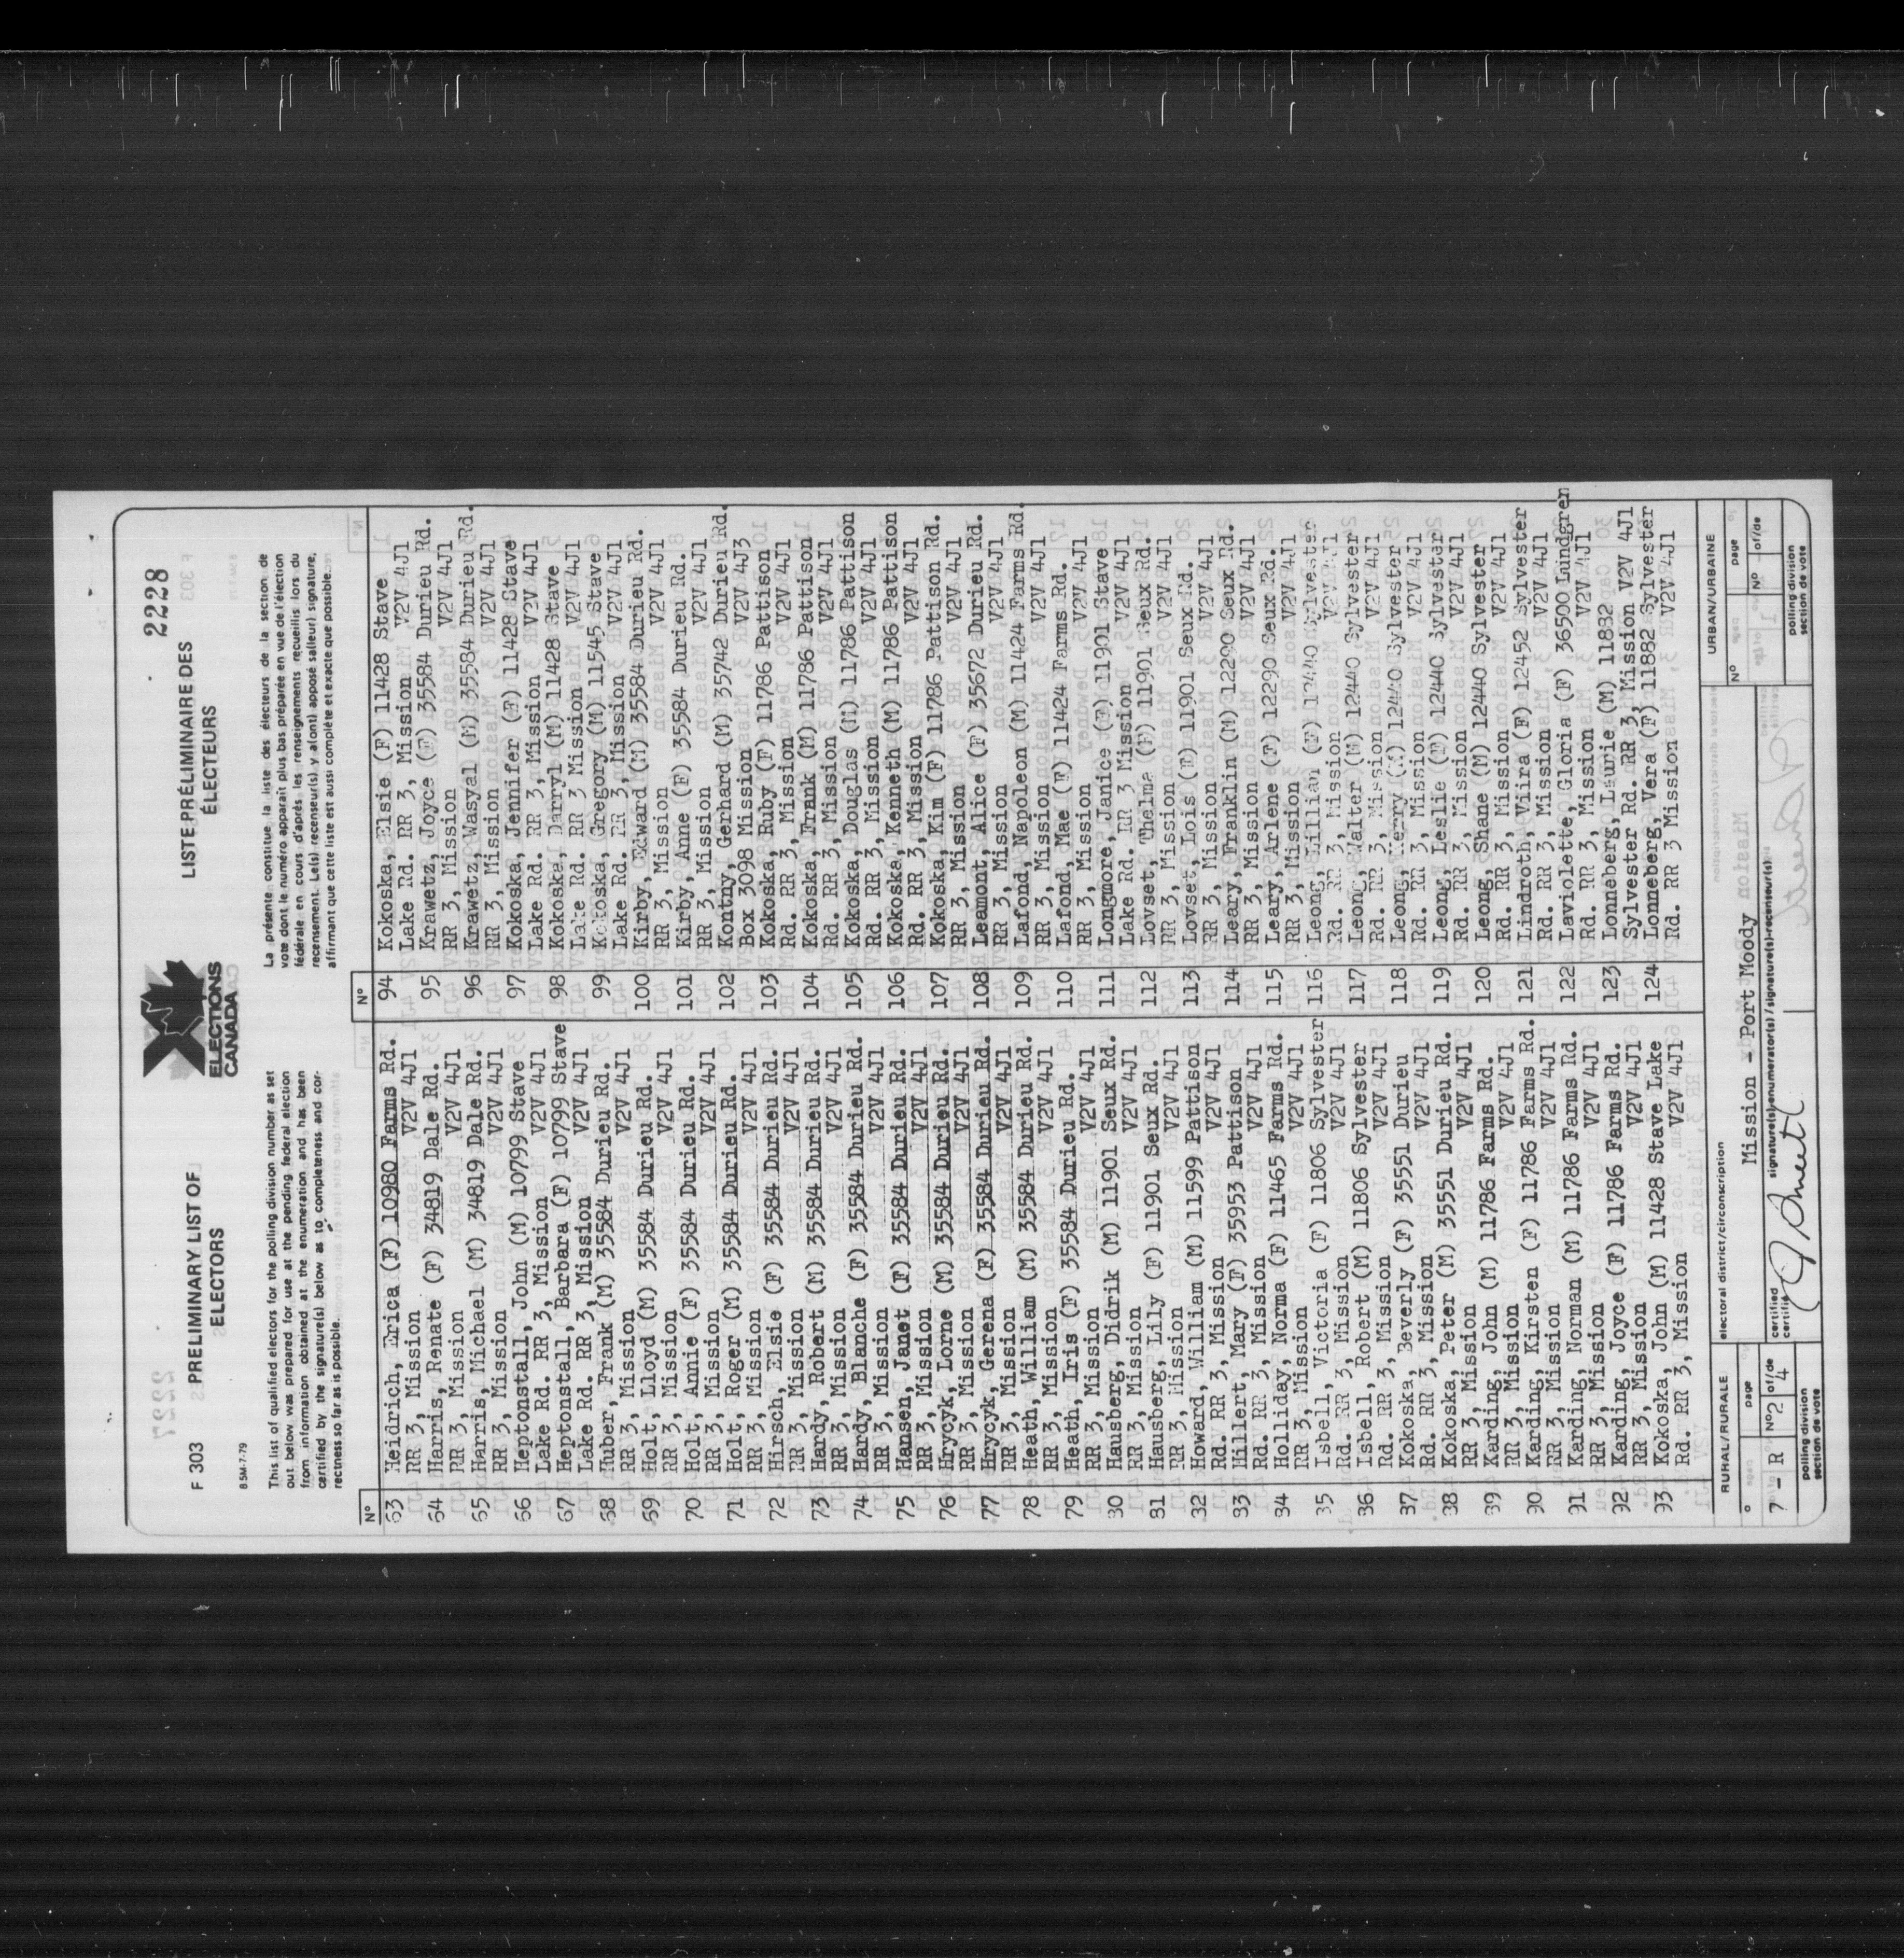 2228
F 303
PRELIMINARY LIST OF
ELECTORS
ELECTIONS
CANADA
LISTE PRÉLIMINAIRE DES
ÉLECTEURS
8.5M-7-79
This list of qualified electors for the polling division number as set
out below was prepared for use at the pending federal election
from information obtained at the enumeration and has been
certified by the signature(s) below as to completeness and cor-
rectness so far as is possible.
La présente constitue la liste des électeurs de la section de
vote dont le numéro apparaît plus bas préparée en vue de l'élection
fédérale en cours d'après les renseignements recueillis lors du
recensement. Le(s) recenseur(s) y a(ont) apposé sa(leur) signature,
affirmant que cette liste est aussi complète et exacte que possible.
Nº
63 Heidrich, Erica (F) 10980 Farms Rd.
RR 3, Mission V2V 4J1
64 Harris, Renate (F) 34819 Dale Rd.
RR 3, Mission V2V 4J1
65 Harris, Michael (M) 34819 Dale Rd.
RR 3, Mission V2V 4J1
66 Heptonstall, John (M) 10799 Stave
Lake Rd. RR 3, Mission V2V 4J1
67 Heptonstall, Barbara (F) 10799 Stave
Lake Rd. RR 3, Mission V2V 4J1
68 Huber, Frank (M) 35584 Durieu Rd.
RR 3, Mission V2V 4J1
69 Holt, Lloyd (M) 35584 Durieu Rd.
RR 3, Mission V2V 4J1
70 Holt, Annie (F) 35584 Durieu Rd.
RR 3, Mission V2V 4J1
71 Holt, Roger (M) 35584 Durieu Rd.
RR 3, Mission V2V 4J1
72 Hirsch, Elsie (F) 35584 Durieu Rd.
RR 3, Mission V2V 4J1
73 Hardy, Robert (M) 35584 Durieu Rd.
RR 3, Mission V2V 4J1
74 Hardy, Blanche (F) 35584 Durieu Rd.
RR 3, Mission V2V 4J1
75 Hansen, Janet (F) 35584 Durieu Rd.
RR 3, Mission V2V 4J1
76 Hrycyk, Lorne (M) 35584 Durieu Rd.
RR 3, Mission V2V 4J1
77 Hrycyk, Gerena (F) 35584 Durieu Rd.
RR 3, Mission V2V 4J1
78 Heath, William (M) 35584 Durieu Rd.
RR 3, Mission V2V 4J1
79 Heath, Iris (F) 35584 Durieu Rd.
RR 3, Mission V2V 4J1
80 Hausberg, Didrik (M) 11901 Seux Rd.
RR 3, Mission V2V 4J1
81 Hausberg, Lily (F) 11901 Seux Rd.
RR 3, Mission V2V 4J1
82 Howard, William (M) 11599 Pattison
Rd. RR 3, Mission V2V 4J1
83 Hillert, Mary (F) 35953 Pattison
Rd. RR 3, Mission V2V 4J1
84 Holliday, Norma (F) 11465 Farms Rd.
RR 3, Mission V2V 4J1
85 Isbell, Victoria (F) 11806 Sylvester
Rd. RR 3, Mission V2V 4J1
86 Isbell, Robert (M) 11806 Sylvester
Rd. RR 3, Mission V2V 4J1
87 Kokoska, Beverly (F) 35551 Durieu
Rd. RR 3, Mission V2V 4J1
88 Kokoska, Peter (M) 35551 Durieu Rd.
RR 3, Mission V2V 4J1
89 Karding, John (M) 11786 Farms Rd.
RR 3, Mission V2V 4J1
90 Karding, Kirsten (F) 11786 Farms Rd.
RR 3, Mission V2V 4J1
91 Karding, Norman (M) 11786 Farms Rd.
RR 3, Mission V2V 4J1
92 Karding, Joyce (F) 11786 Farms Rd.
RR 3, Mission V2V 4J1
93 Kokoska, John (M) 11428 Stave Lake
Rd. RR 3, Mission V2V 4J1
Nº
94 Kokoska, Elsie (F) 11428 Stave
Lake Rd. RR 3, Mission V2V 4J1
95 Krawetz, Joyce (F) 35584 Durieu Rd.
RR 3, Mission V2V 4J1
96 Krawetz, Wasyal (M) 35584 Durieu Rd.
RR 3, Mission V2V 4J1
97 Kokoska, Jennifer (F) 11428 Stave
Lake Rd. RR 3, Mission V2V 4J1
98 Kokoska, Darryl (M) 11428 Stave
Lake Rd. RR 3 Mission V2V 4J1
99 Kokoska, Gregory (M) 11545 Stave
Lake Rd. RR 3, Mission V2V 4J1
100 Kirby, Edward (M) 35584 Durieu Rd.
RR 3, Mission V2V 4J1
101 Kirby, Anne (F) 35584 Durieu Rd.
RR 3, Mission V2V 4J1
102 Kontny, Gerhard (M) 35742 Durieu Rd.
Box 3098 Mission V2V 4J3
103 Kokoska, Ruby (F) 11786 Pattison
Rd. RR 3, Mission V2V 4J1
104 Kokoska, Frank (M) 11786 Pattison
Rd. RR 3, Mission V2V 4J1
105 Kokoska, Douglas (M) 11786 Pattison
Rd. RR 3, Mission V2V 4J1
106 Kokoska, Kenneth (M) 11786 Pattison
Rd. RR 3, Mission V2V 4J1
107 Kokoska, Kim (F) 11786 Pattison Rd.
RR 3, Mission V2V 4J1
108 Leamont, Alice (F) 35672 Durieu Rd.
RR 3, Mission V2V 4J1
109 Lafond, Napoleon (M) 11424 Farms Rd.
RR 3, Mission V2V 4J1
110 Lafond, Mae (F) 11424 Farms Rd.
RR 3, Mission V2V 4J1
111 Longmore, Janice (F) 11901 Stave
Lake Rd. RR 3 Mission V2V 4J1
112 Lovset, Thelma (F) 11901 Seux Rd.
RR 3, Mission V2V 4J1
113 Lovset, Lois (F) 11901 Seux Rd.
RR 3, Mission V2V 4J1
114 Leary, Franklin (M) 12290 Seux Rd.
RR 3, Mission V2V 4J1
115 Leary, Arlene (F) 12290 Seux Rd.
RR 3, Mission V2V 4J1
116 Leong, Lillian (F) 12440 Sylvester
Rd. RR 3, Mission V2V 4J1
117 Leong, Walter (M) 12440 Sylvester
Rd. RR 3, Mission V2V 4J1
118 Leong, Kerry (M) 12440 Sylvester
Rd. RR 3, Mission V2V 4J1
119 Leong, Leslie (F) 12440 Sylvester
Rd. RR 3, Mission V2V 4J1
120 Leong, Shane (M) 12440 Sylvester
Rd. RR 3, Mission V2V 4J1
121 Lindroth, Viira (F) 12452 Sylvester
Rd. RR 3, Mission V2V 4J1
122 Laviolette, Gloria (F) 36500 Lundgren
Rd. RR 3, Mission V2V 4J1
123 Lonneberg, Laurie (M) 11882
Sylvester Rd. RR 3, Mission V2V 4J1
124 Lonneberg, Vera (F) 11882 Sylvester
Rd. RR 3 Mission V2V 4J1
RURAL/RURALE
page
7 - R
Nº 2 of/de 4
polling division
section de vote
electoral district/circonscription
Mission - Port Moody
certified
certifié
signature(s)-enumerator(s)/signature(s)-recenseur(s)
URBAN/URBAINE
Nº
page
Nº
of/de
polling division
section de vote